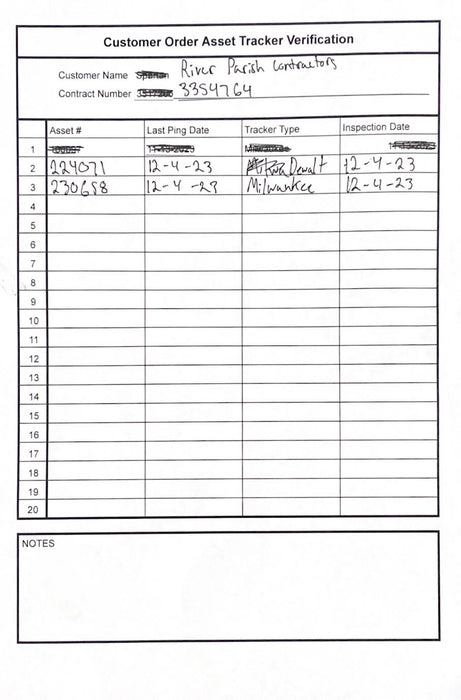 Customer Order Asset Tracker Verification
Customer Name River Parish Contractors
Contract Number 3354764
Asset # Last Ping Date Tracker Type Inspection Date
1
2 224071 12-4-23 Dewalt 12-4-23
3 230658 12-4-23 Milwaukee 12-4-23
4
5
6
7
8
9
10
11
12
13
14
15
16
17
18
19
20
NOTES